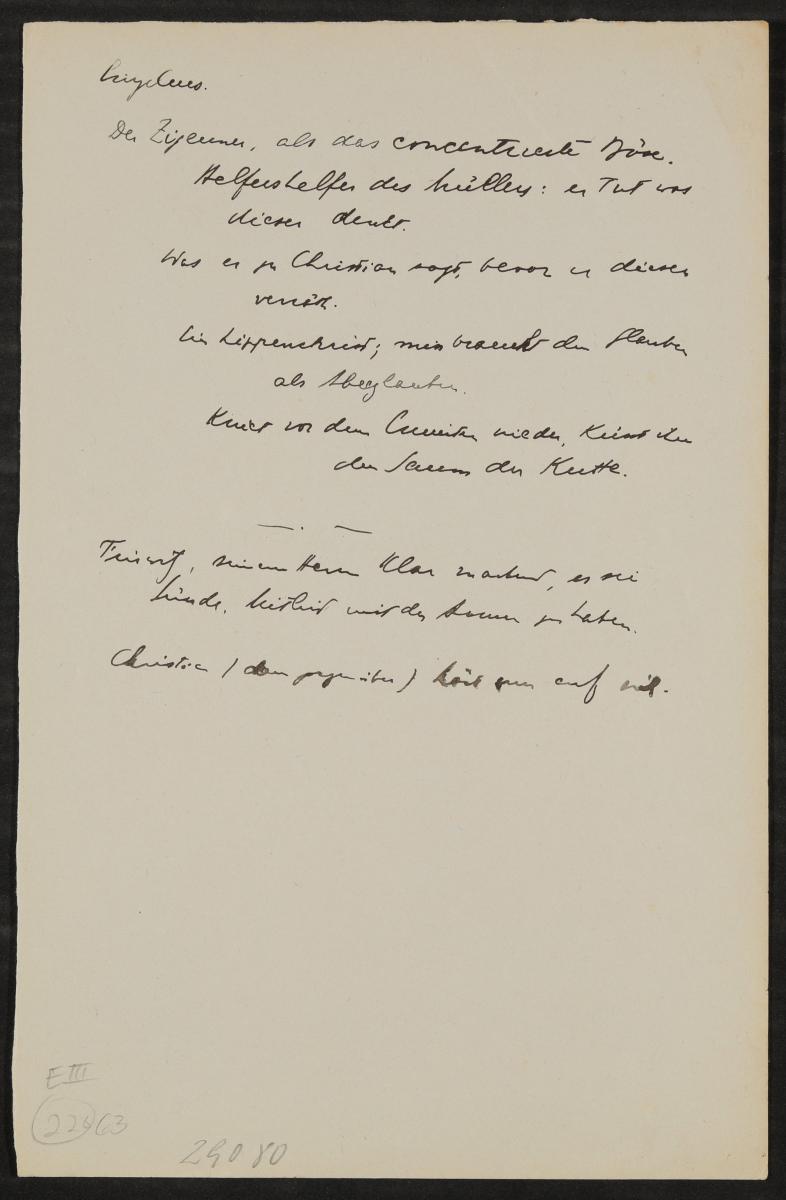 Der Zigeuner, als das concentrierte Böse.
Helfershelfer des Müllers: er tut was
dieser denkt.
Was er zu Christian sagt, bevor er diesen
verrät.
Ein Lippenchrist; missbraucht den Glauben
als Aberglauben.
Kniet vor dem Eremiten nieder, küsst ihm
den Saum der Kutte.
— . —
, seinem Herrn klar machend, es sei
Sünde, Mitleid mit der Armen zu haben.
Christian (dem gegenüber) hört nun auf
E III
22463
29080